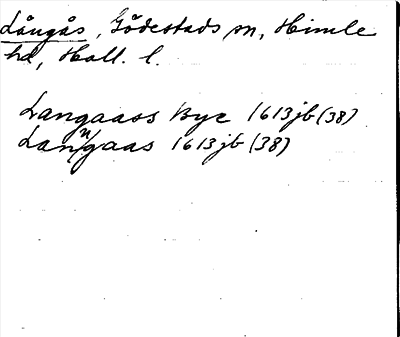 Långås, Gödestads sn, Himle
hd, Hall. l.
Langaass Bye 1613 jb (38)
Lanngaas 1613 jb (38)